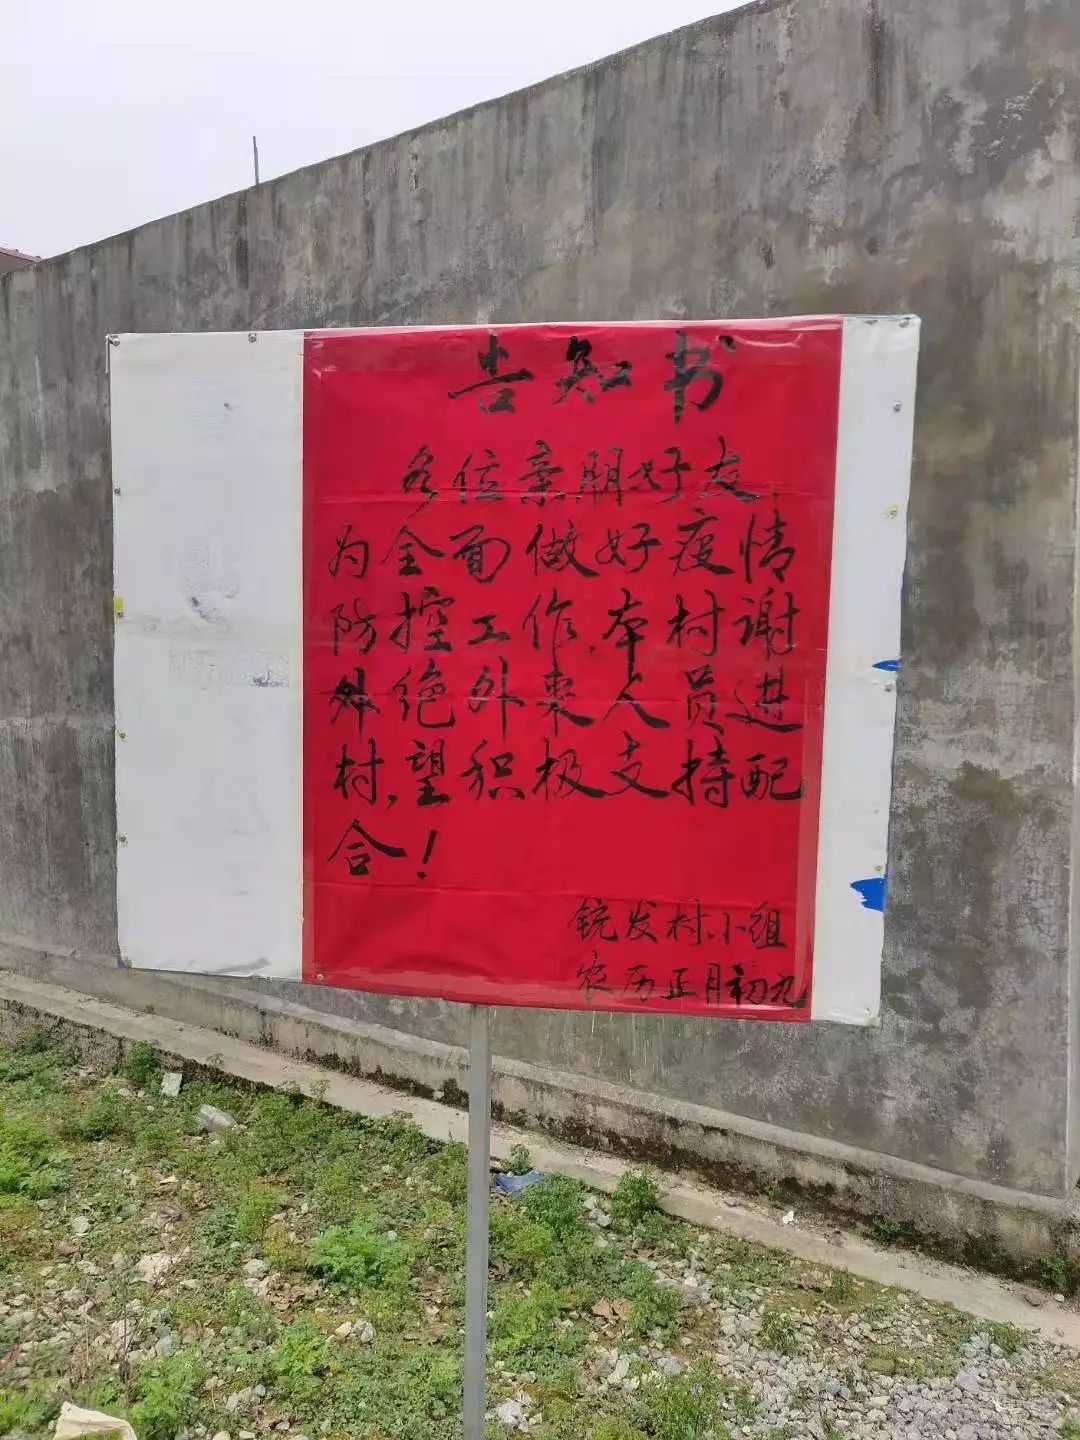 告知书
各位亲朋好友,
为全面做好疫情
防控工作,本村谢
外绝外来人员进
村,望积极支持配
合!
铳发村小组
农历正月初九